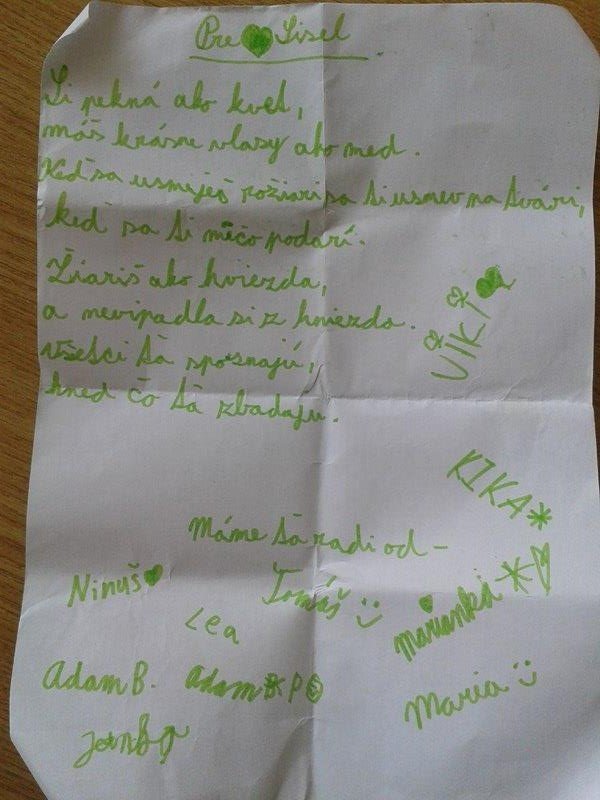 Pre Lisel
Si pekná ako kvet,
máš krásne vlasy ako med.
Keď sa usmeješ rožiari sa ti usmev na tvári,
keď sa ti niečo podarí.
Žiariš ako hviezda,
a nevipadla si z hniezda.
Všetci ťa spoznajú,
hneď čo ťa zbadaju.
VIKI
KIKA*
Máme ťa radi od -
Ninuš
Tomáš :)
Marianka *
Lea
Adam B.
Adam P
Maria :)